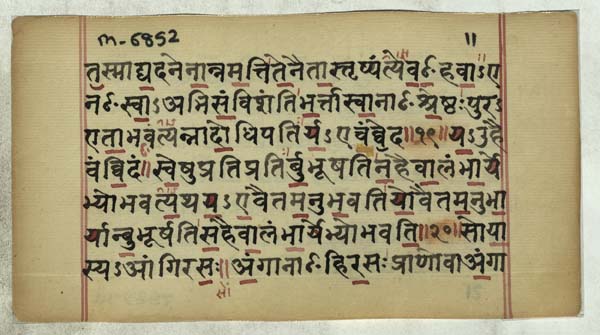 m-6852 ॥
तस्माद्यदनेनान्नमत्तितेनैतास्तृप्यंत्येवꣳहवाऽए
नꣳस्वाऽअभिसंविशंतिभर्त्तास्वानाꣳश्रेष्ठःपुरऽ
एताभवत्यन्नादोधिपतिर्यऽएवंव्वेद॥१९॥यऽउहै
वंव्विदं॥स्वेषुप्रतिप्रतिर्बुभूषतिनहैवालंभार्ये
भ्योभवत्यथयऽएवैतमनुभवतियोवैतमनुभा
र्यान्बुभूर्षतिसहैवालंभार्येभ्योभवति॥२०॥सोया
स्यऽआंगिरसः॥अंगानाꣳहिरसःप्राणोवाअंगा